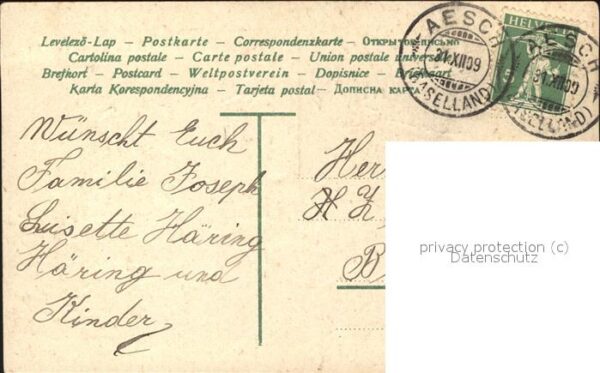 Levelező-Lap — Postkarte — Correspondenzkarte — Открытое письмо
Cartolina postale — Carte postale — Union postale universelle
Brefkort — Postcard — Weltpostverein — Dopisnice — Briefkaart
Karta Korespondencyjna — Tarjeta postal — Дописна карта
HELVETIA
AESCH
31.XII.09
(BASELLAND)
AESCH
31.XII.09
(BASELLAND)
Wünscht Euch
Familie Joseph
Lisette Häring
Häring und
Kinder
Her
B
privacy protection (c)
Datenschutz